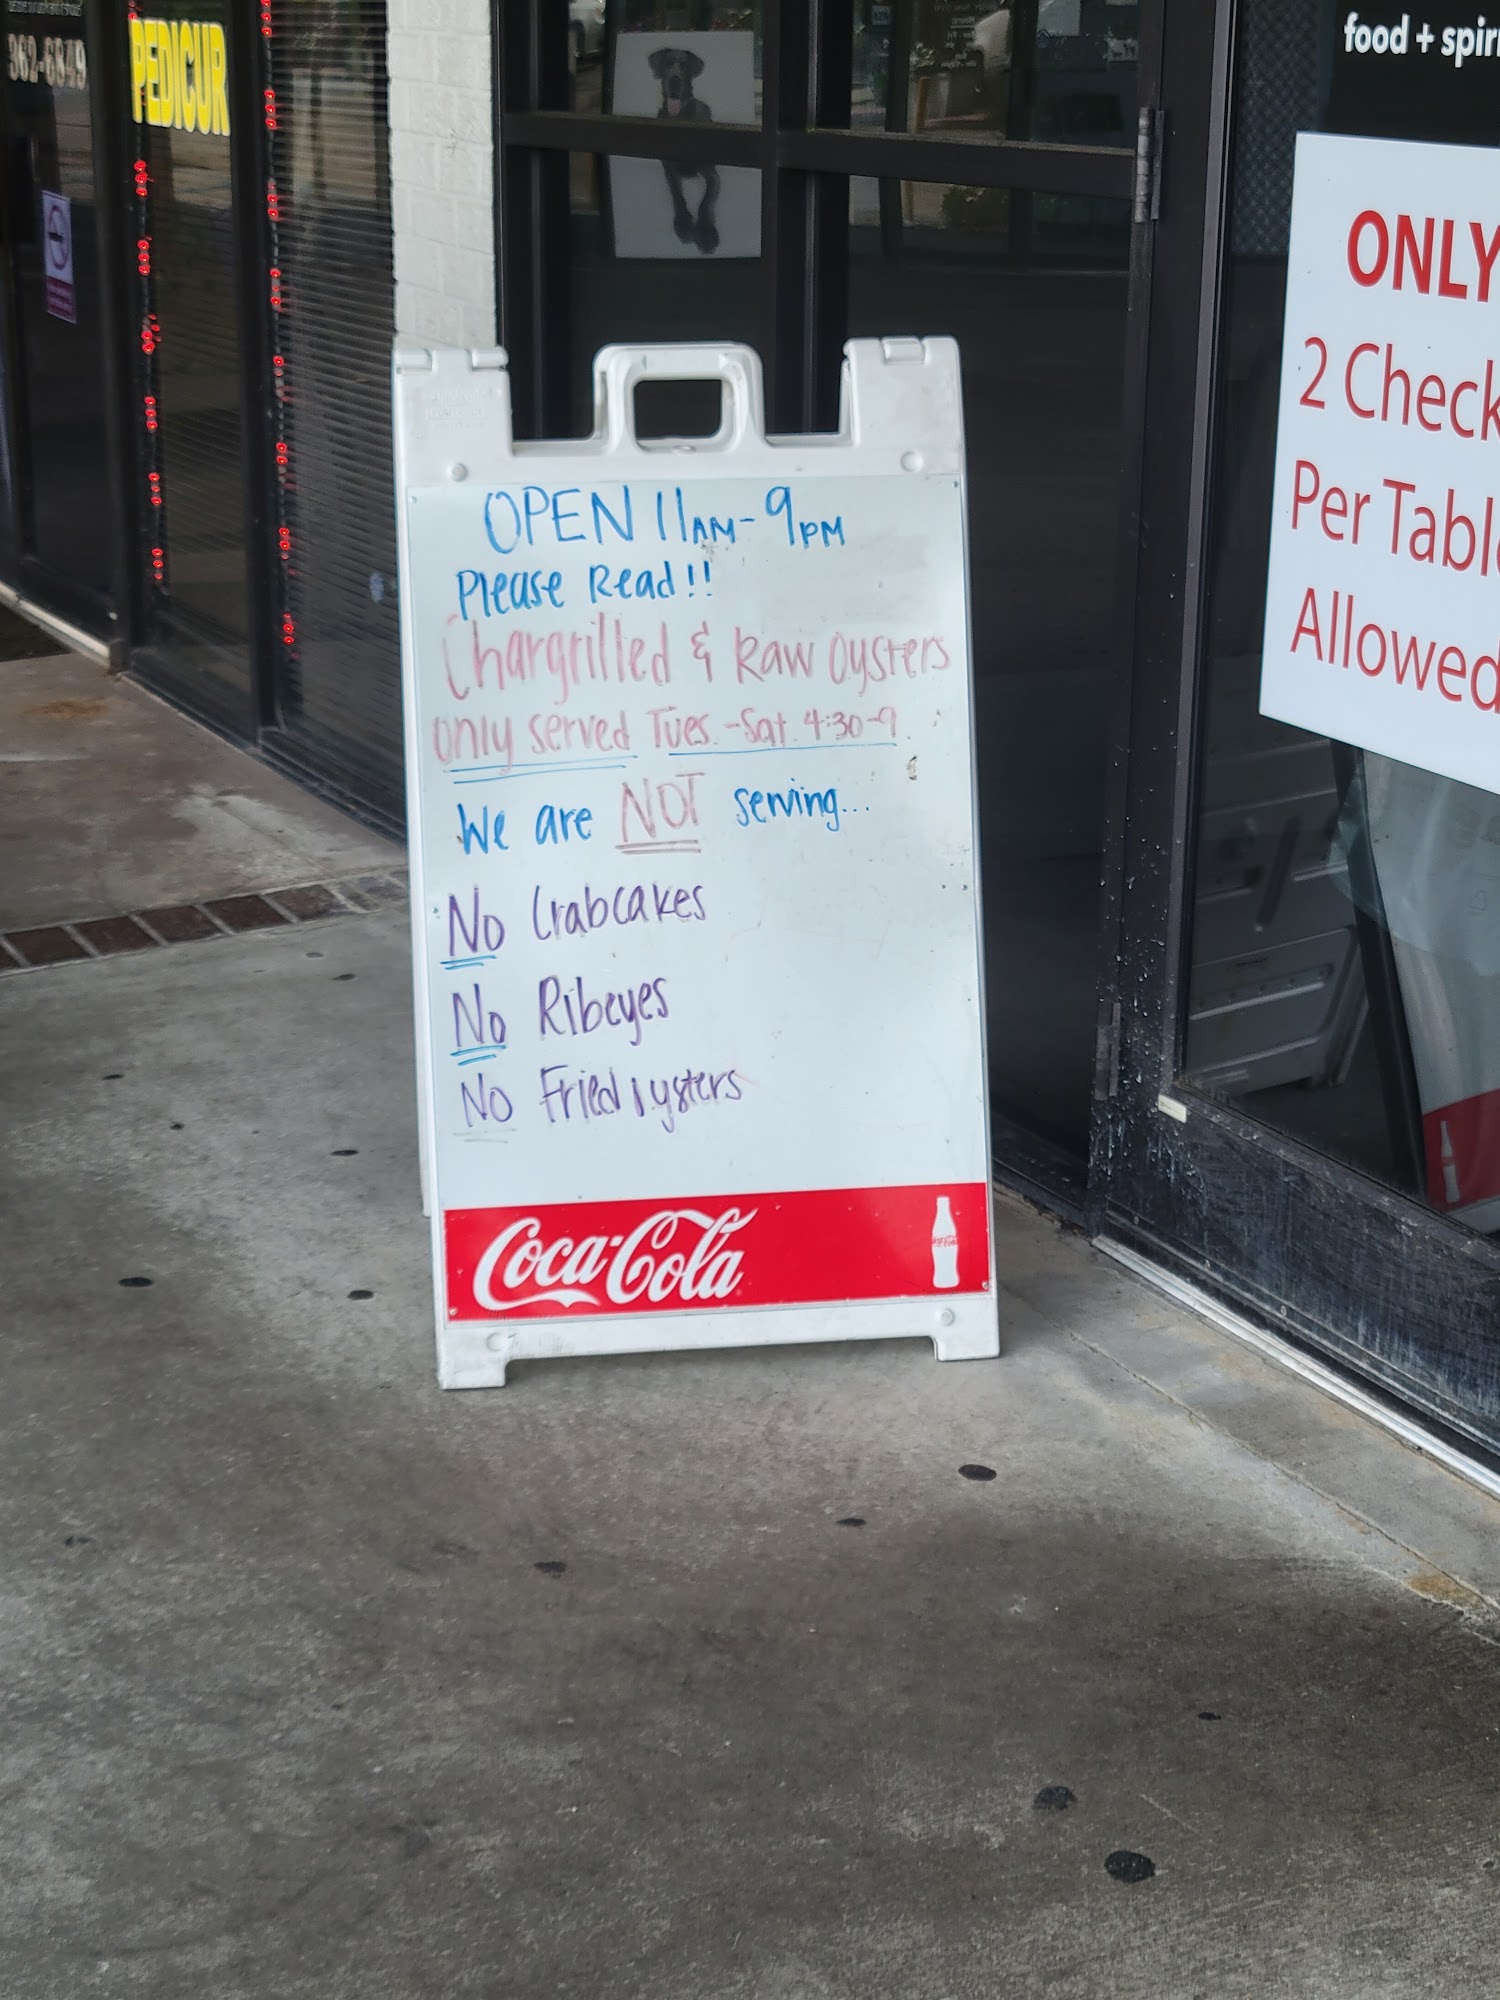 362-6849
PEDICUR
food + spiri
ONLY
2 Check
Per Table
Allowed
OPEN 11AM-9PM
Please Read!!
Chargrilled & Raw Oysters
only served Tues.-Sat. 4:30-9
We are NOT serving...
No Crabcakes
No Ribeyes
No Fried oysters
Coca-Cola